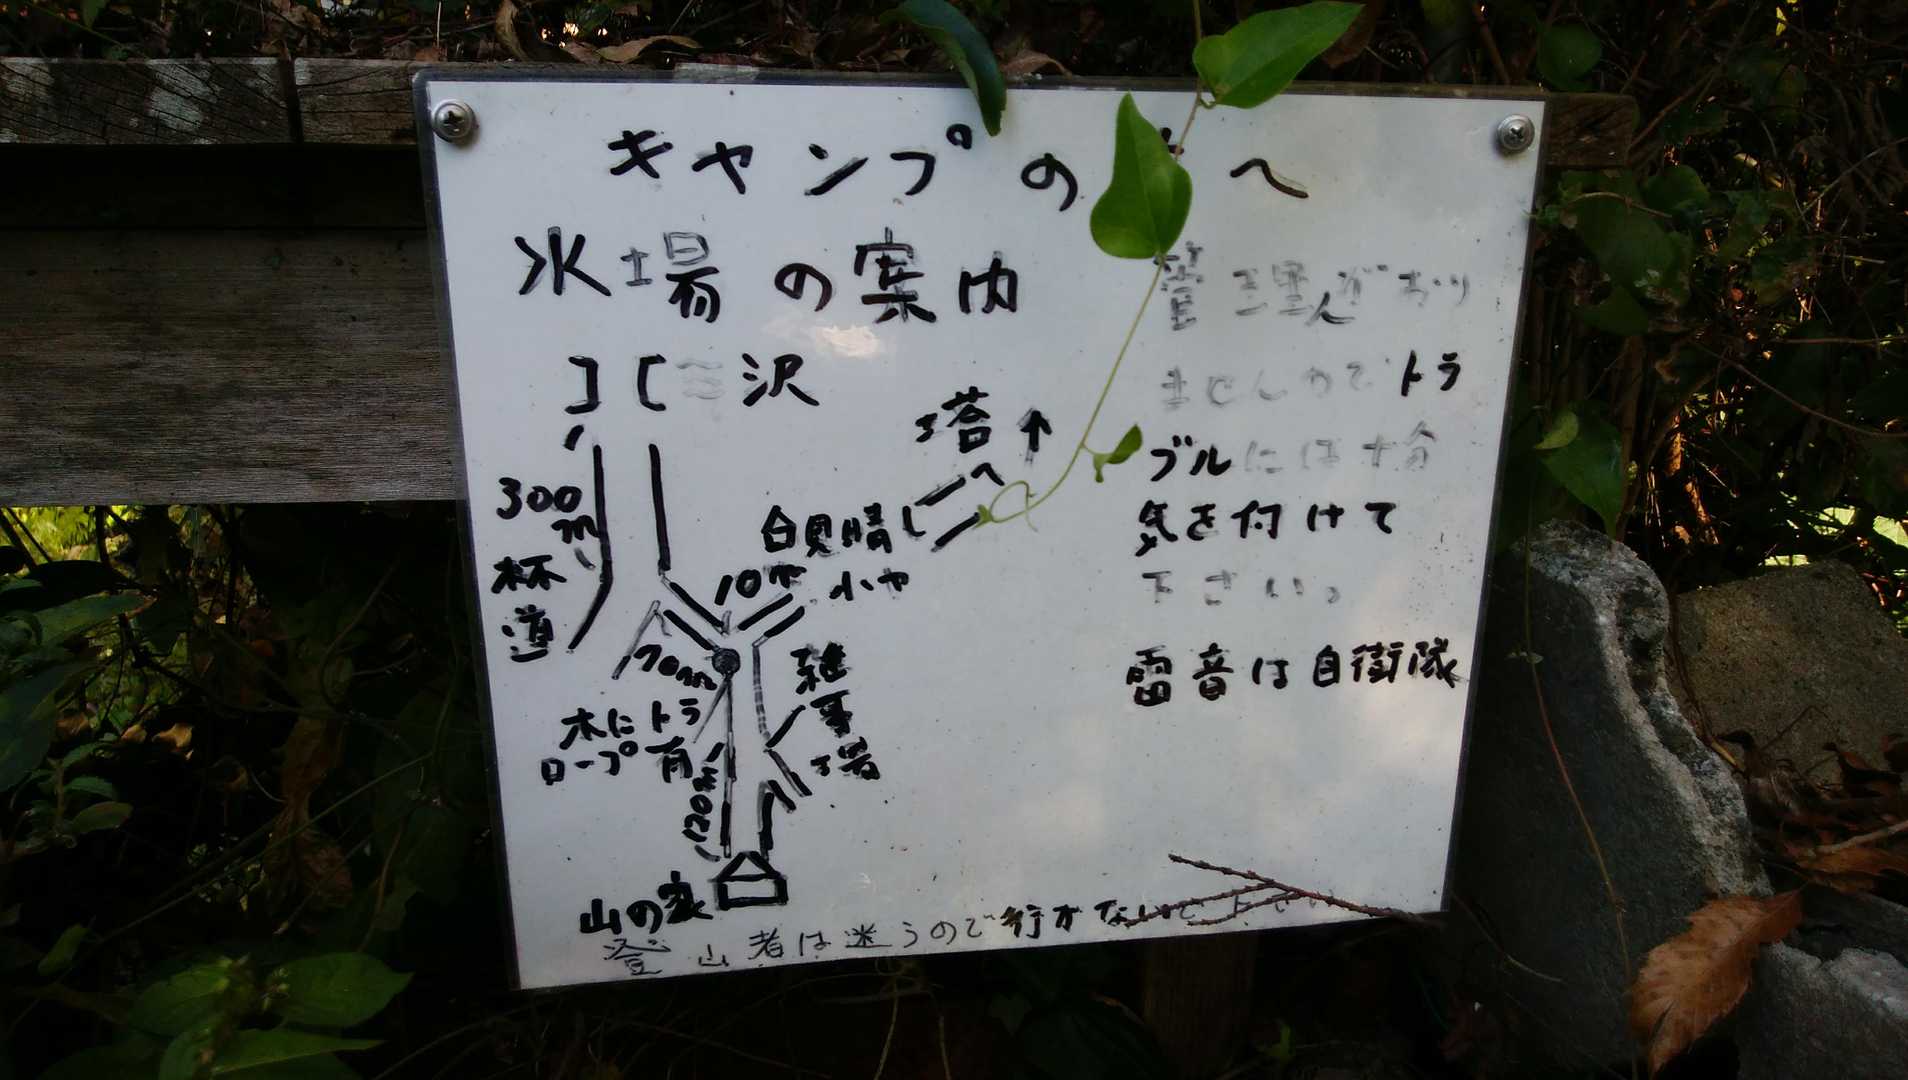 キャンプの へ
水場の案内
管理人がおり
ませんのでトラ
ブルには十分
気を付けて
下さい。
雷音は自衛隊
沢
塔へ
300m
林道
見晴し
小ヤ
10m
70m
木にトラ
ロープ有
雑事場
120m
山の家
登山者は迷うので行かないで下さい